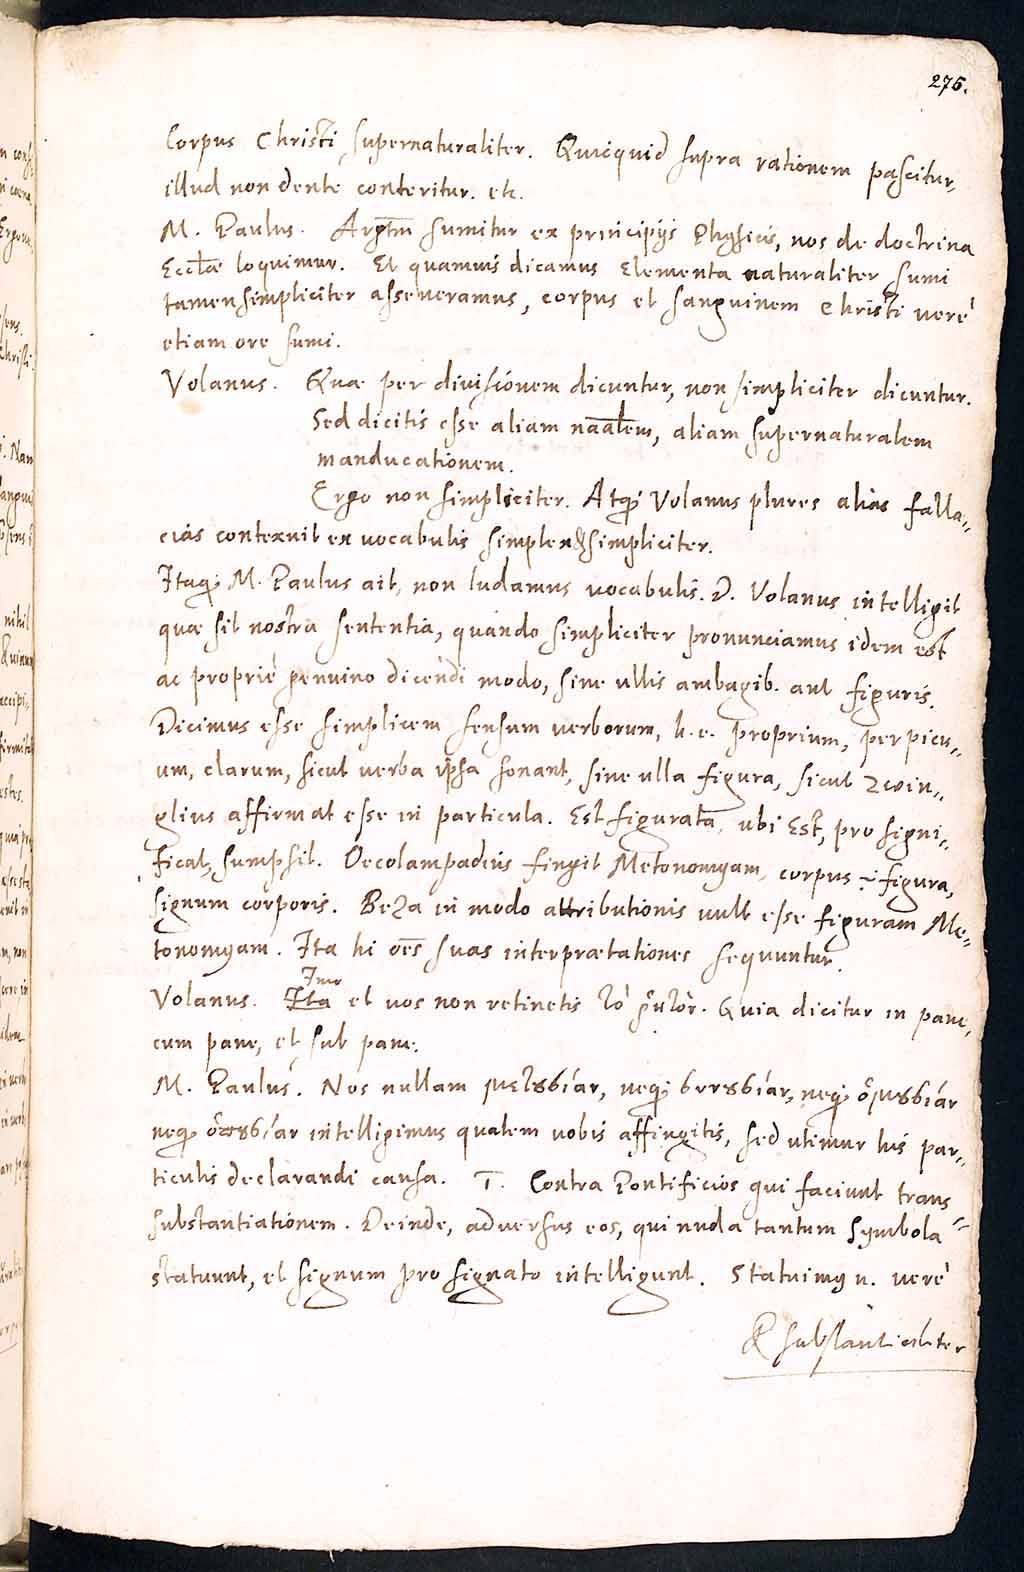 276.
Corpus Christi supernaturaliter. Quicquid supra rationem pascitur,
illud non dente conteritur. etc.
M. Paulus. Argtm̄ sumitur ex principijs Physicis, nos de doctrina
Eccl̄æ loquimur. Et quamuis dicamus Elementa naturaliter sumi
tamen simpliciter asseueramus, corpus et sanguinem Christi verè
etiam ore sumi.
Volanus. Quæ per divisionem dicuntur, non simpliciter dicuntur.
Sed dicitis esse aliam naālem, aliam supernaturalem
manducationem.
Ergo non simpliciter. Atq; Volanus plures alias falla„
cias contexuit ex vocabulis simplex & simpliciter.
Itaq; M. Paulus ait, non ludamus vocabulis. D. Volanus intelligit
quæ sit nostra sententia, quando simpliciter pronunciamus idem est
ac propriè genuino dicēdi modo, sine ullis ambagib. aut figuris.
Dicimus esse simplicem sensum verborum, h. e. proprium, perpicu„
um, clarum, sicut verba ipsa sonant, sine ulla figura, sicut Zwin„
glius affirmat esse in particula. Est figurata, ubi Est, pro signi„
ficat, sumpsit. Oecolampadius fingit Metonomyam, corpus .i. figura,
signum corporis. Beza in modo attributionis uult esse figuram Me„
tonomyam. Ita hi oēs suas interprætationes sequuntur.
Imo
Volanus. Ita et vos non retinetis τὸ ῥητὸν. Quia dicitur in pane,
cum pane, et sub pane.
M. Paulus. Nos nullam μετουσίαν, neq; συνουσίαν, neq; ὁμουσίαν
neq; intelligimus qualem vobis affingitis, sed utimur his par„
ticulis declarandi causa. I. Contra Pontificios qui faciunt trans„
substantiationem. Deinde, adversus eos, qui nuda tantum symbola
statuunt, et signum pro signato intelligunt. Statuimus n. verè
& substantialiter